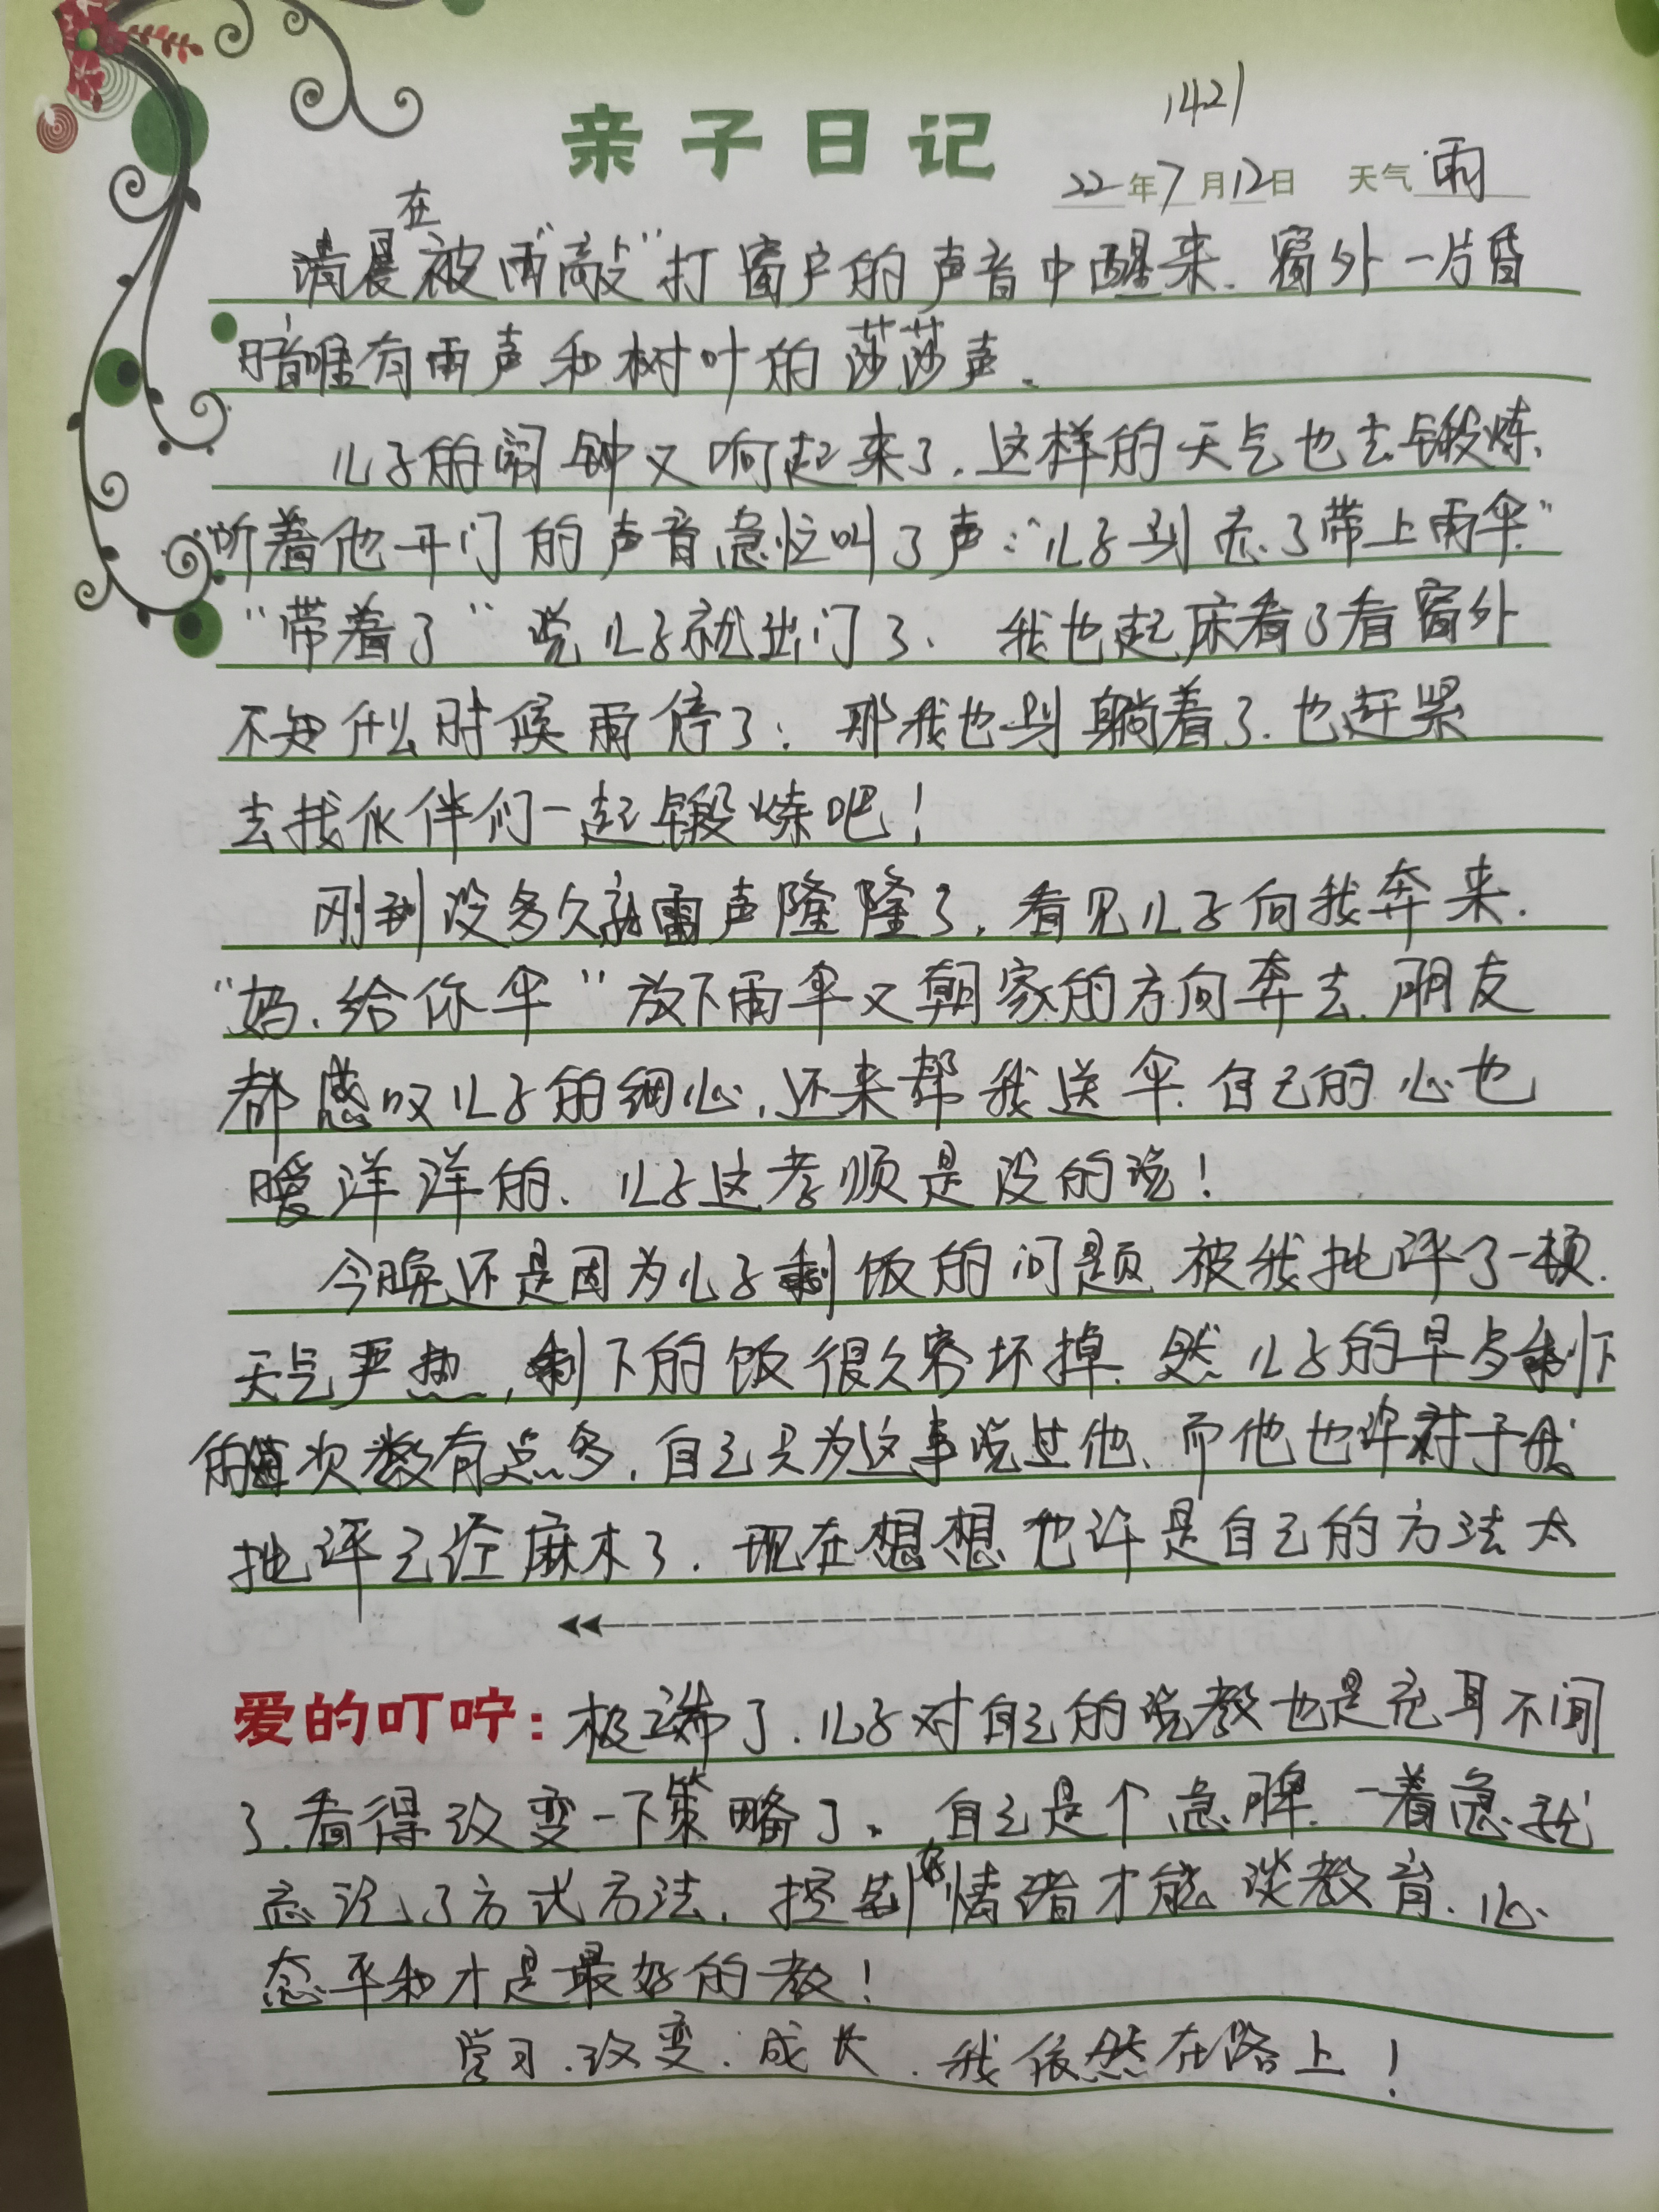 1421
亲子日记
22年7月12日 天气雨
在
清晨被雨"敲"打窗户的声音中醒来.窗外一片昏
暗唯有雨声和树叶的莎莎声.
儿子的闹钟又响起来了.这样的天气也去锻炼.
听着他开门的声音急忙叫了声:"儿子别忘了带上雨伞"
"带着了"说儿子就出门了.我也起床看了看窗外
不知什么时候雨停了:那我也别躺着了.也赶紧
去找伙伴们一起锻炼吧!
刚到没多久就雷声隆隆了.看见儿子向我奔来.
"妈.给你伞"放下雨伞又朝家的方向奔去.朋友
都感叹儿子的细心,还来帮我送伞.自己的心也
暖洋洋的.儿子这孝顺是没的说!
今晚还是因为儿子剩饭的问题被我批评了一顿.
天气严热,剩下的饭很久容坏掉.然儿子的早点剩下
的次数有点多.自己只为这事说过他.而他也许对于我
批评已经麻木了.现在想想也许是自己的方法太
爱的叮咛:极端了.儿子对自己的说教也是充耳不闻
了.看得改变一下策略了。自己是个急脾.一着急就
忘记了方式方法.控制好情绪才能谈教育.心
态平和才是最好的教!
学习.改变.成长.我依然在路上!